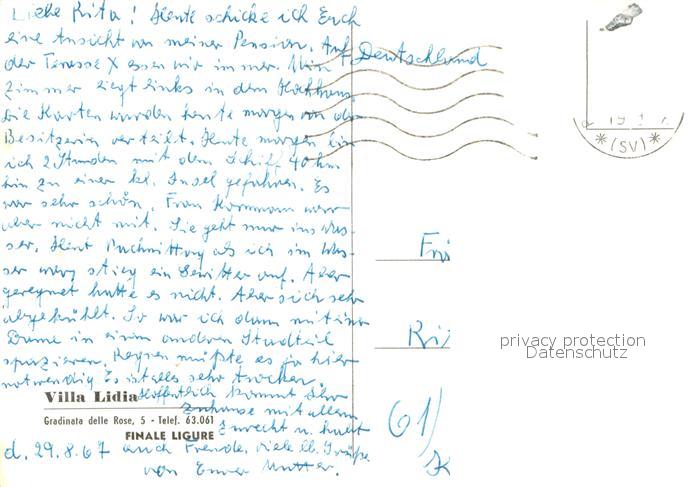 Liebe Rita! Heute schicke ich Euch
eine Ansicht von meiner Pension. Auf
der Terasse X essen wir immer. Mein
Deutschland
Zimmer liegt links in dem Hochhaus.
Die Karten wurden heute morgen von der
Besitzerin verteilt. Heute morgen bin
ich 2 Stunden mit dem Schiff 40 km
hin zu einer kl. Insel gefahren. Es
war sehr schön. Frau war
aber nicht mit. Sie geht nur ins Was-
ser. Heut Nachmittag als ich im Was-
ser war, stieg ein Gewitter auf. Aber
geregnet hatte es nicht. Aber sich sehr
abgekühlt. So war ich dann mit einer
Dame in einem anderen Stadtteil
spazieren. Regnen müßte es ja hier
notwendig. Es ist alles sehr trocken.
Hoffentlich kommt Ihr
zuhause mit allem
zurecht u. habt
auch Freude. viele lb. Grüße
von Eurer Mutter.
Villa Lidia
Gradinata delle Rose, 5 - Telef. 63.061
FINALE LIGURE
d. 29.8.67
(SV)
61/
privacy protection
Datenschutz